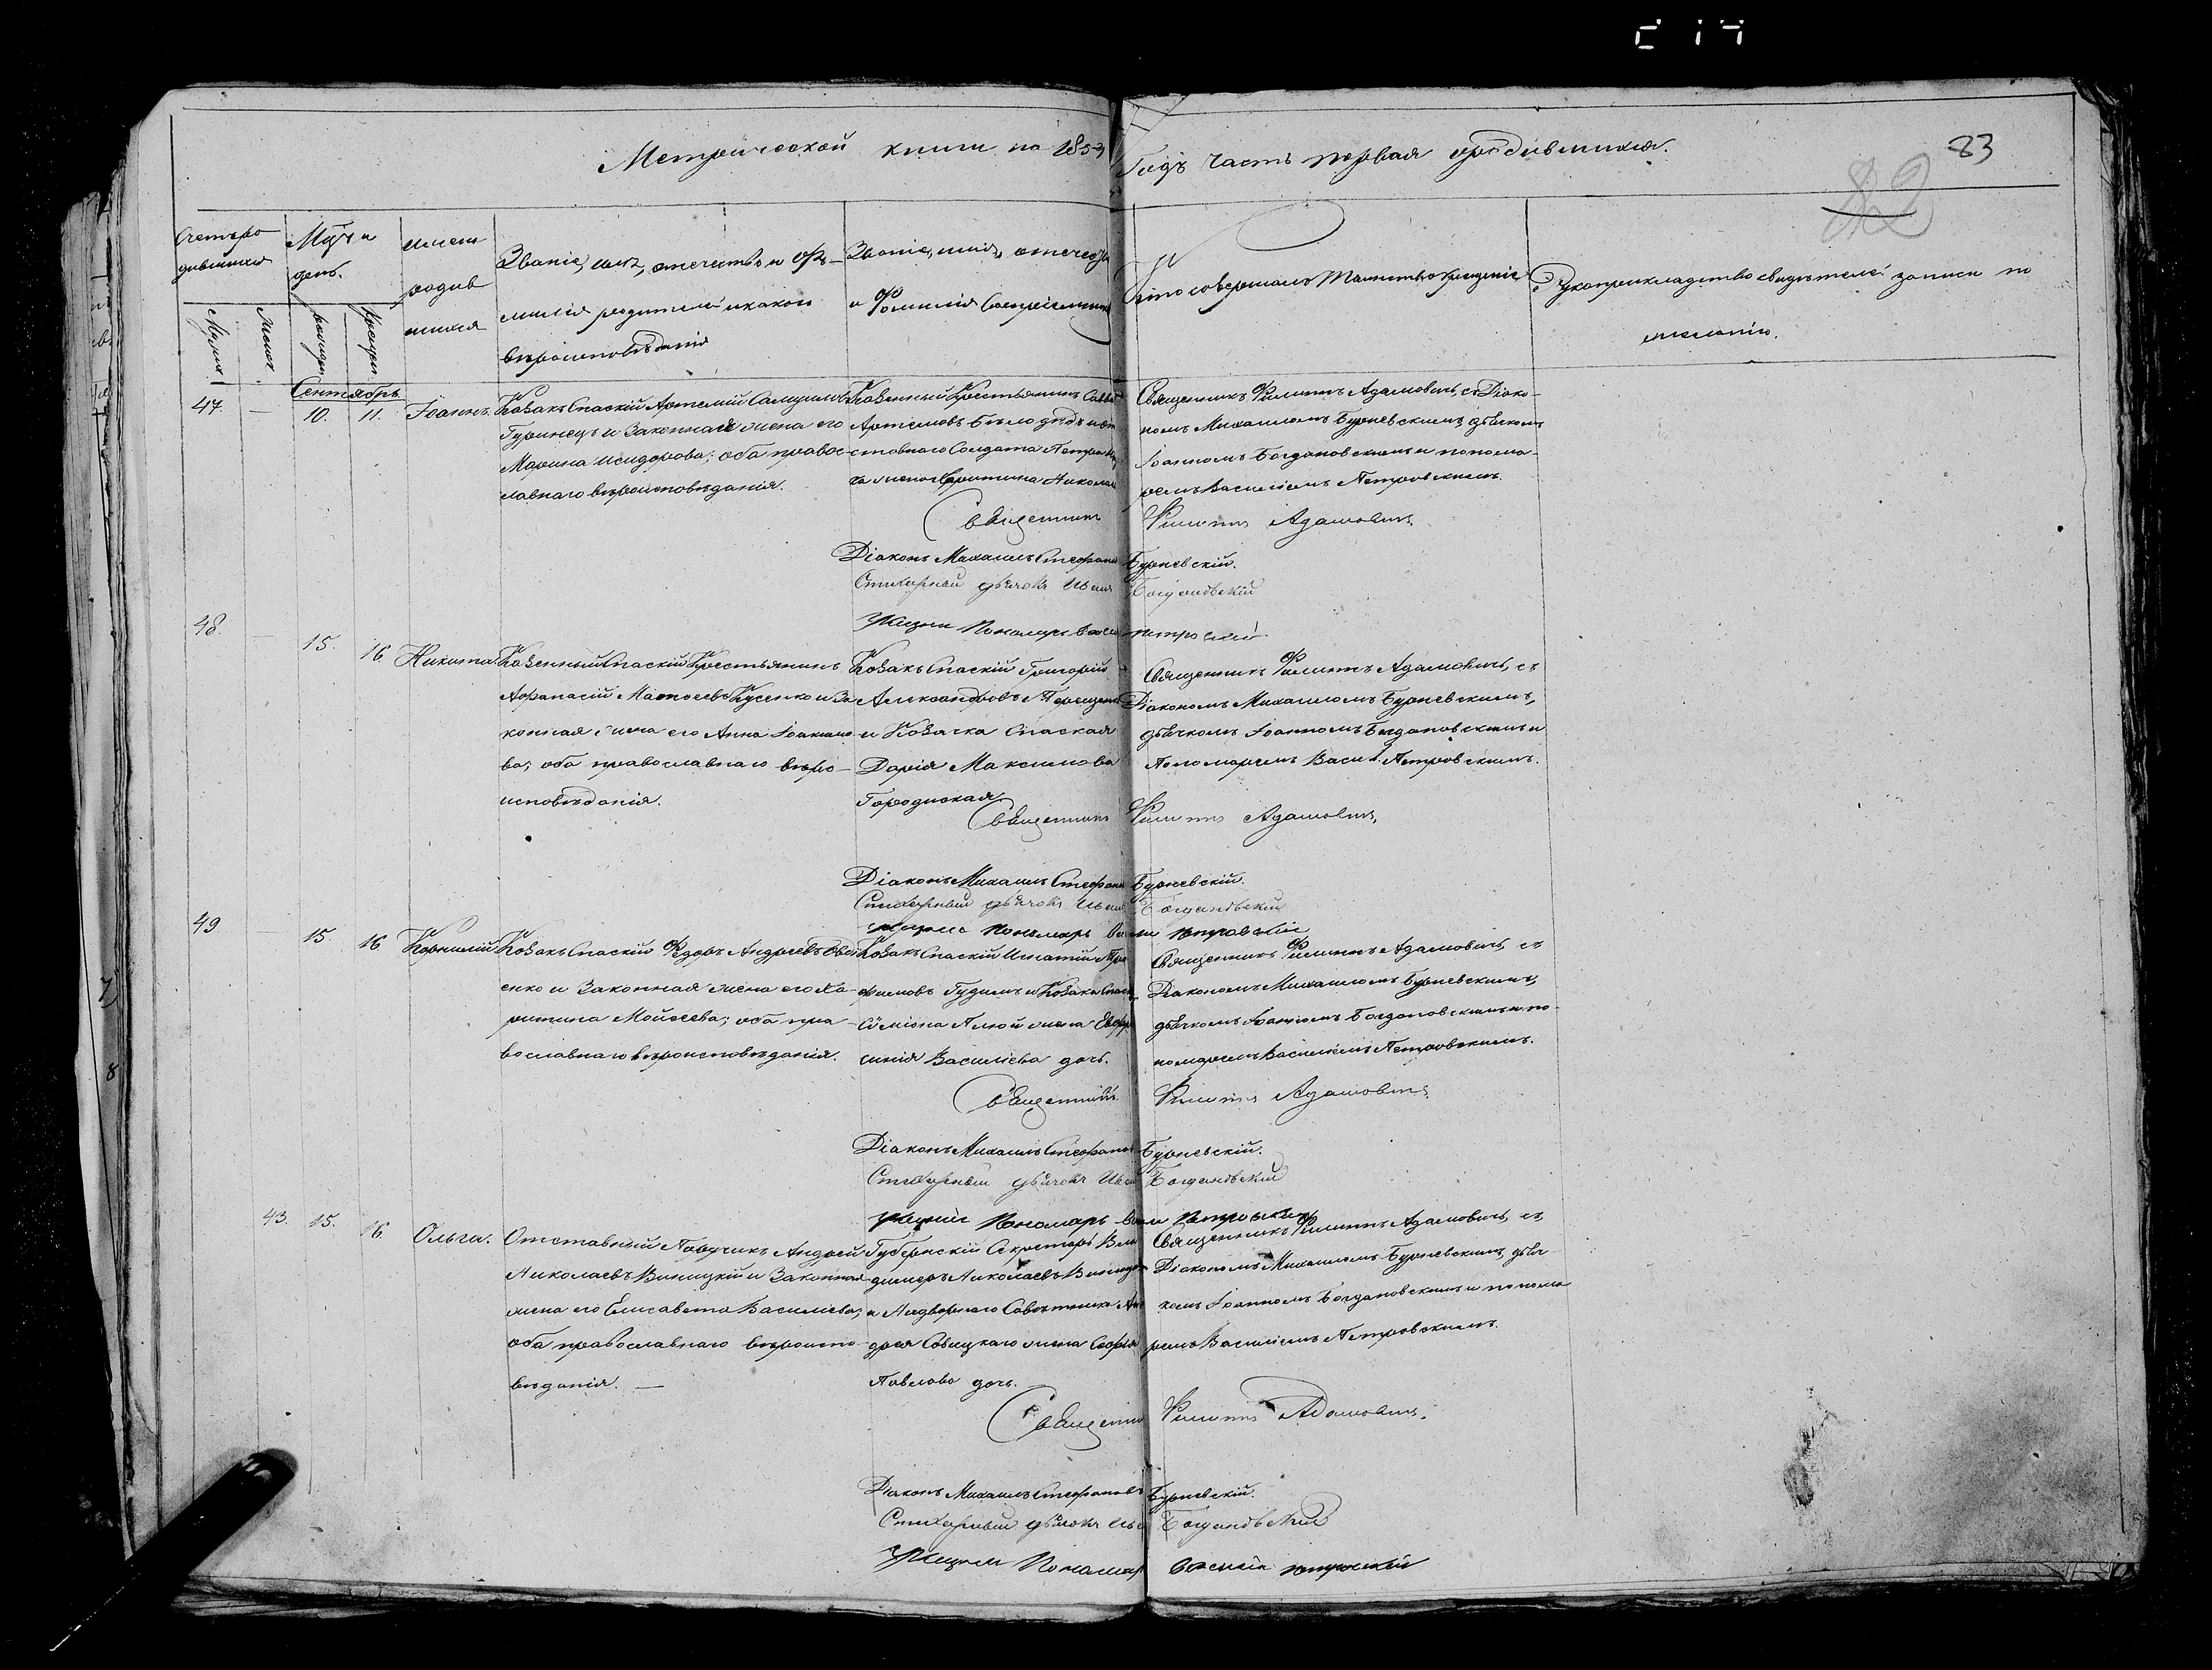 83
82
Метрической книги на 1853 Годъ часть первая о родившихся.
Счетъ ро
дившихся
Мужеска
Женска
Мѣсяцъ и
день.
рожденія
крещенія
имена
родив
шихся
Званіе, имя, отчество и фа-
милія родителей и какого
вѣроисповѣданія
Званіе, имя, отчество
и фамилія Воспріемниковъ
Кто совершалъ Таинство Крещенія
Рукоприкладство свидѣтелей записи по
желанію.
Сентябрь
47. — 10. 11. Іоаннъ.
Козакъ Спаскій Артемій
Гуринецъ и Законная жена его
Марина Исидорова; оба правос-
лавнаго вѣроисповѣданія.
Казенный Крестьянинъ Савва
Артемовъ Бѣлодѣдъ и от
ставнаго Солдата Петра
жена Харитина Никола
Священникъ Филиппъ Адамовичъ, съ Діако-
номъ Михаиломъ Бурневскимъ, дьячкомъ
Іоанномъ Богдановскимъ и понома-
ремъ Василіемъ Петровскимъ.
Священникъ Филиппъ Адамовичъ
Діаконъ Михаилъ Стефановъ Бурневскій.
Стихарный дьячокъ Иванъ Богдановскій
Пономарь Васи петровскій
48. — 15. 16 Никита.
Казенный Спаскій Крестьянинъ
Афанасій Матвеевъ Кусенко и За
конная жена его Анна Іоанно
ва; оба православнаго вѣро-
исповѣданія.
Козакъ Спаскій Григорій
Александровъ Терещенко
и Козачка Спаская
Дарія Максимова
Городиская
Священникъ Филиппъ Адамовичъ, съ
Діакономъ Михаиломъ Бурневскимъ,
дьячкомъ Іоанномъ Богдановскимъ и
Пономаремъ Васил. Петровскимъ.
Священникъ Филиппъ Адамовичъ,
Діаконъ Михаилъ Стефановъ Бурневскій.
Стихарный дьячокъ Иванъ Богдановскій
пономарь Васи петровскій
49 — 15. 16 Корнилій
Козакъ Спаскій Федоръ Андреевъ
енко и Законная жена его Ха-
ритина Моисеева; оба пра
вославнаго вѣроисповѣданія.
Козакъ Спаскій Игнатій Тро
фимовъ Гудимъ и Козака Спаск
Сѵмеона жена Евфро
синія Василіева дочь.
Священникъ Филиппъ Адамовичъ, съ
Діакономъ Михаиломъ Бурневскимъ,
дьячкомъ Іоанномъ Богдановскимъ и по-
номаремъ Василіемъ Петровскимъ.
Священникъ Филиппъ Адамовичъ,
Діаконъ Михаилъ Стефановъ Бурневскій.
Стихарный дьячокъ Иванъ Богдановскій
Пономарь Васи Петровскій
43. 15. 16. Ольга.
Отставный Поручикъ Андрей
Николаевъ Виницкій и Законная
жена его Елисавета Василіева;
оба православнаго вѣроиспо-
вѣданія. —
Губернскій Секретарь Вла
димеръ Николаевъ Виницкій
и Надворнаго Совѣтника Ан
дрея Савицкаго жена Софія
Павлова дочь.
Священникъ Филиппъ Адамовичъ, съ
Діакономъ Михаиломъ Бурневскимъ, дьяч-
комъ Іоанномъ Богдановскимъ и понома
ремъ Василіемъ Петровскимъ.
Священни Филиппъ Адамовичъ.
Діаконъ Михаилъ Стефановъ Бурневскій.
Стихарный дьячокъ Ива Богдановскій
Пономарь Василій петровскій